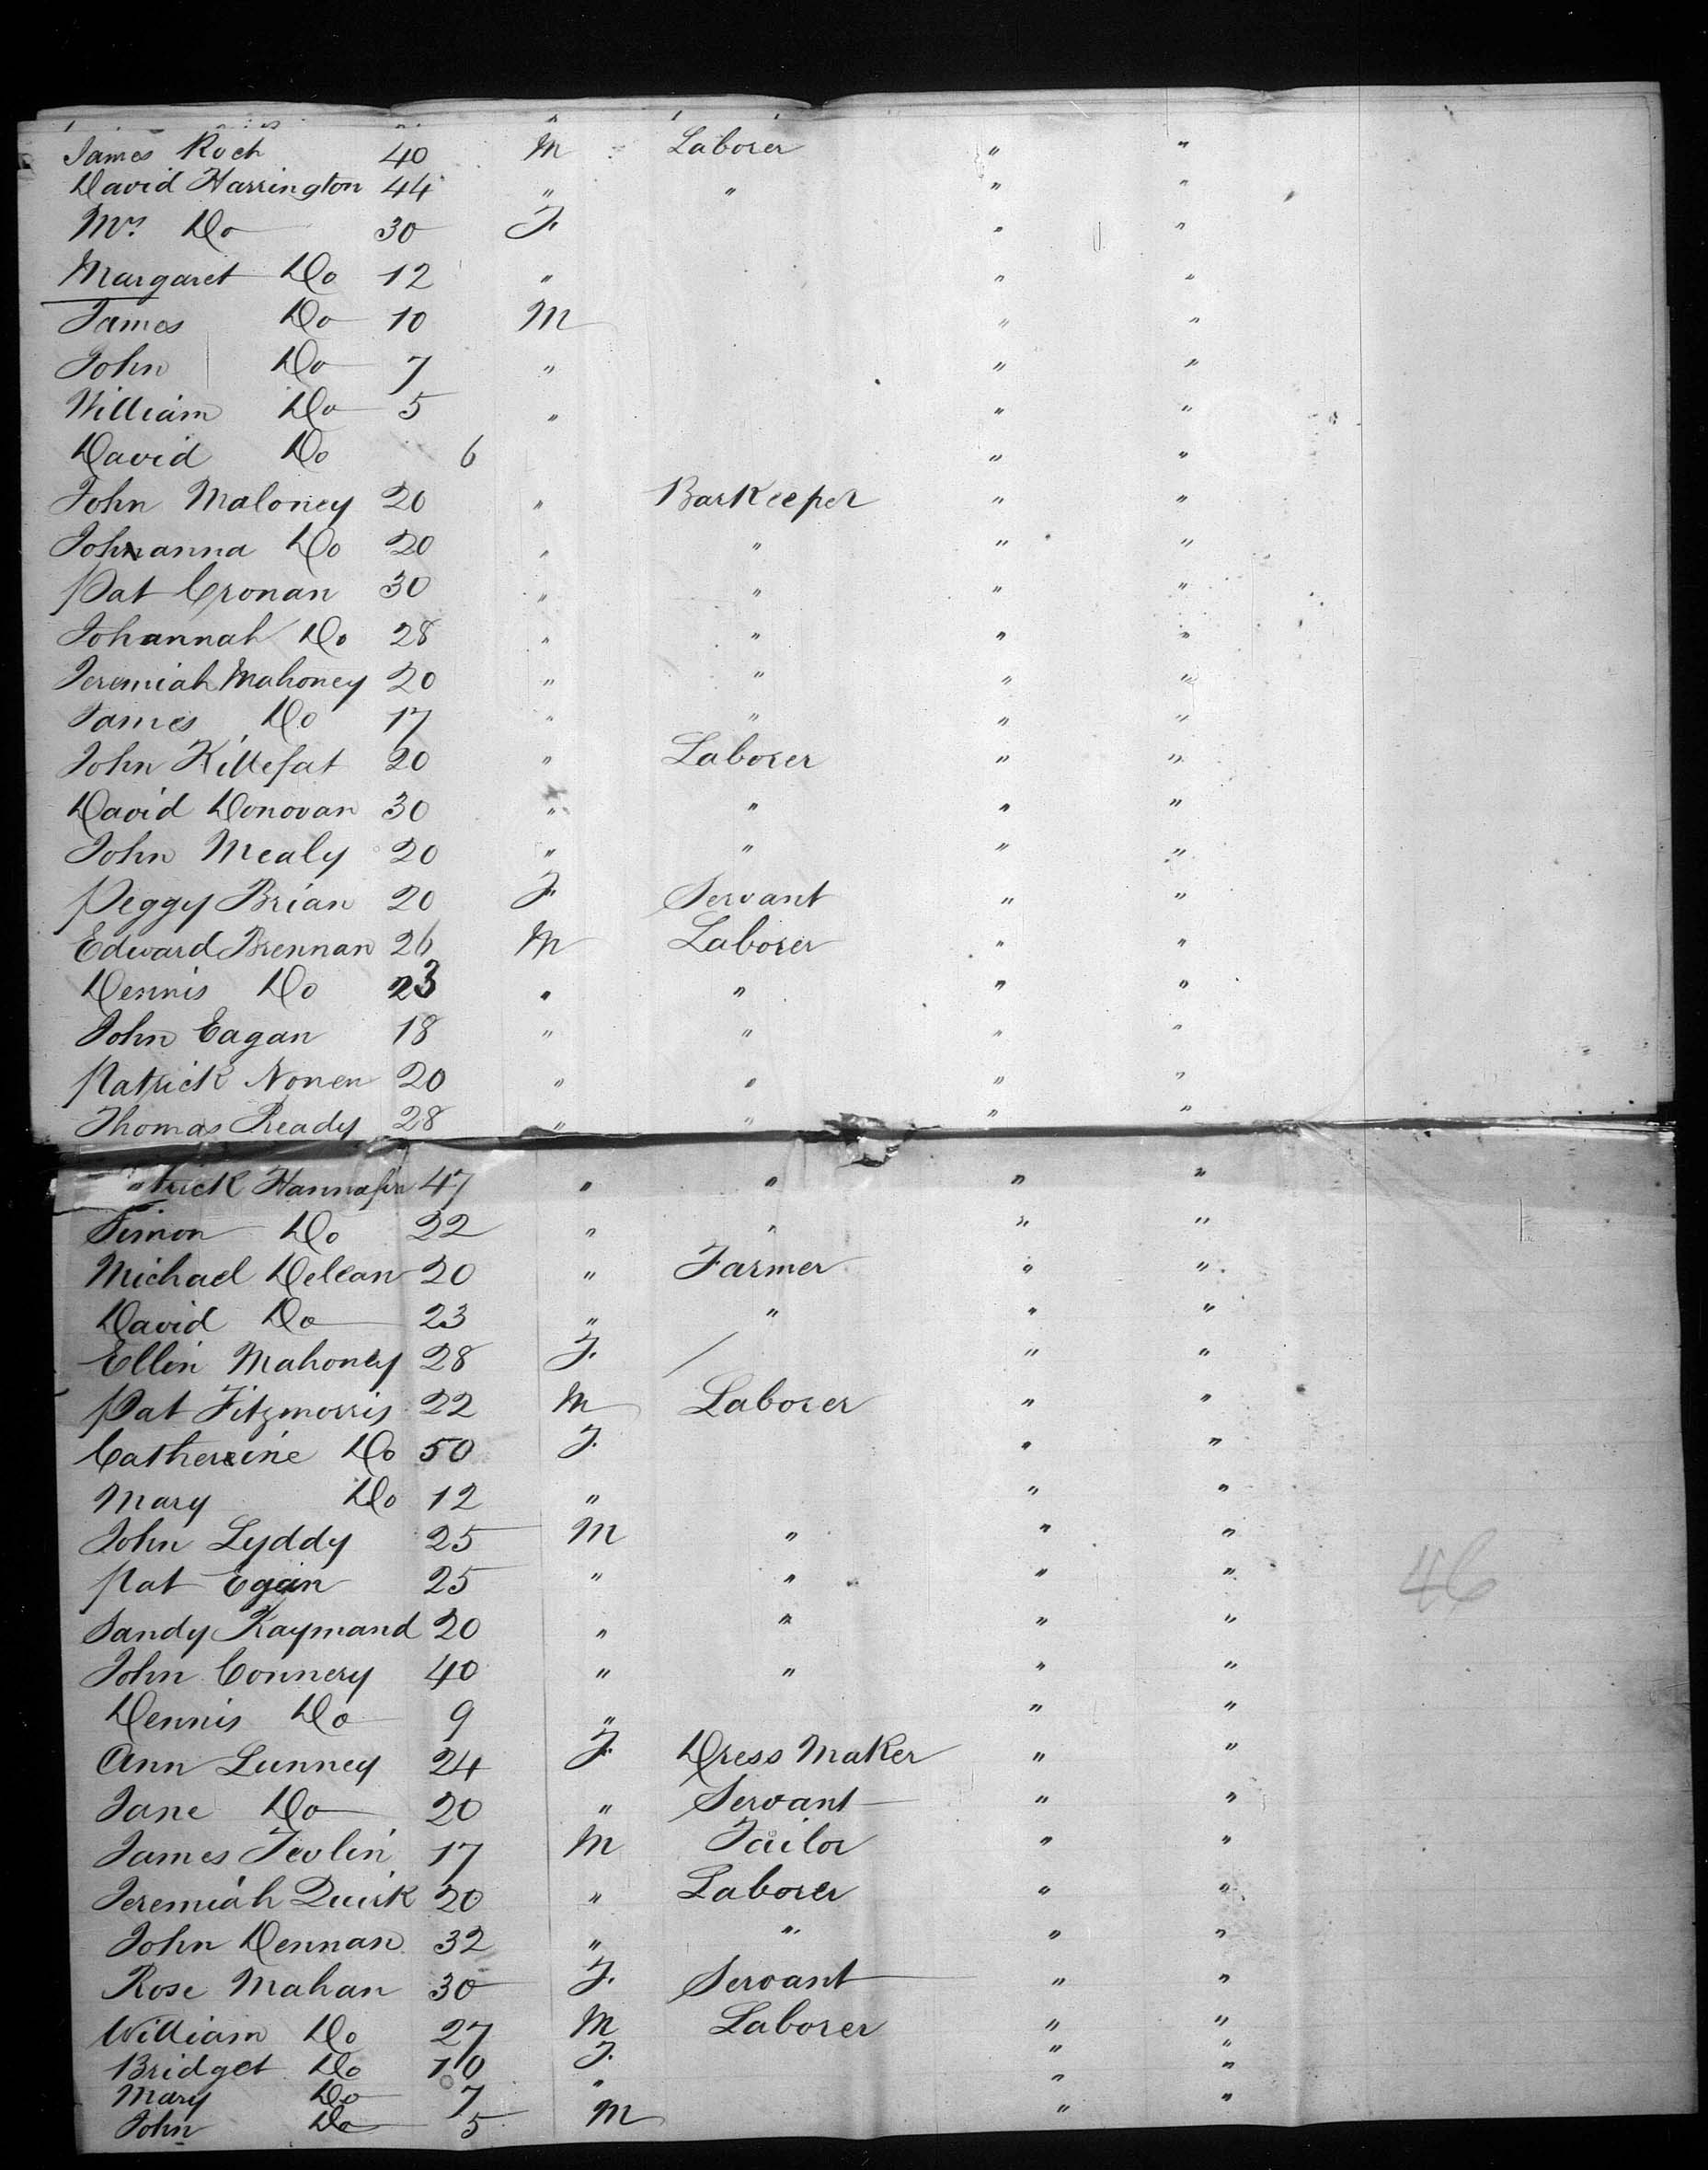 James Roch 40 M Laborer " "
David Harrington 44 " " " "
Mrs. Do 30 F. " "
Margaret Do 12 " " "
James Do 10 M " "
John Do 7 " " "
William Do 5 " " "
David Do 6 " "
John Maloney 20 " BarKeeper " "
Johnanna Do 20 " " " "
Pat Cronan 30 " " " "
Johannah Do 28 " " " "
Jeremiah Mahoney 20 " " " "
James Do 17 " " " "
John Killefat 20 " Laborer " "
David Donovan 30 " " " "
John Mealy 20 " " " "
Peggy Brian 20 F. Servant " "
Edward Brennan 26 M Laborer " "
Dennis Do 23 " " " "
John Eagan 18 " " " "
Patrick Nonen 20 " " " "
Thomas Ready 28 " " " "
trick Hannafin 47 " " " "
Simon Do 22 " " " "
Michael Delean 20 " Farmer " "
David Do 23 " " " "
Ellin Mahoney 28 F. / " "
Pat Fitzmorris 22 M Laborer " "
Cathereine Do 50 F. " "
Mary Do 12 " " "
John Lyddy 25 M " " "
Pat Egan 25 " " " "
46
Sandy Raymand 20 " " " "
John Connery 40 " " " "
Dennis Do 9 " " "
Ann Lunney 24 F. Dress Maker " "
Jane Do 20 " Servant " "
James Tevlin 17 M Tailor " "
Jeremiah Quirk 20 " Laborer " "
John Dennan 32 " " " "
Rose Mahan 30 F. Servant " "
William Do 27 M Laborer " "
Bridget Do 10 F. " "
Mary Do 7 " " "
John Do 5 M " "